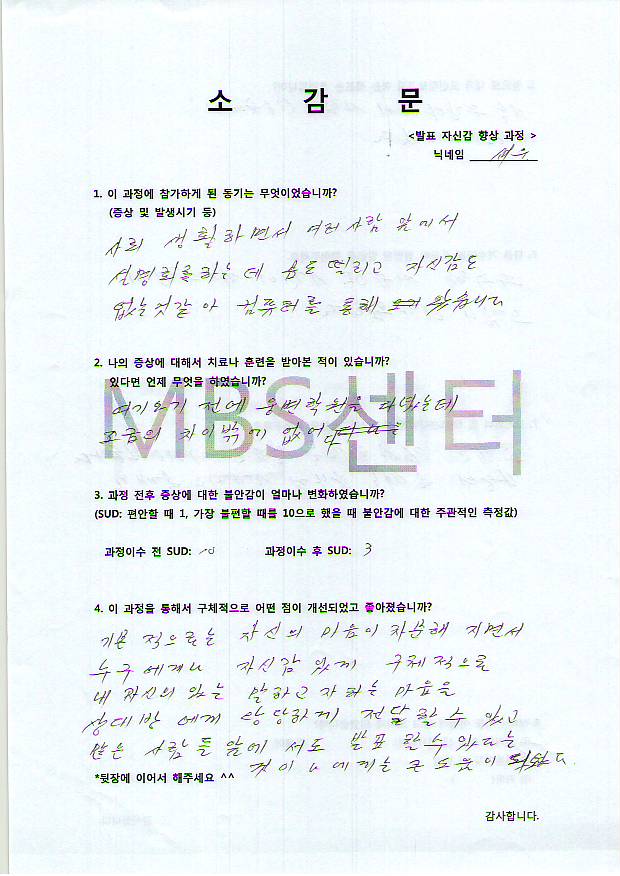 소 감 문
<발표 자신감 향상 과정 >
닉네임 새우
1. 이 과정에 참가하게 된 동기는 무엇이었습니까?
(증상 및 발생시기 등)
사회 생활하면서 여러 사람 앞에서
설명회를 하는 데 몸도 떨리고 자신감도
없는것같아 컴퓨터를 통해 왔습니다
2. 나의 증상에 대해서 치료나 훈련을 받아본 적이 있습니까?
있다면 언제 무엇을 하였습니까?
MBS센터
여기오기 전에 웅변학원을 다녔는데
조금의 차이밖에 없어다
3. 과정 전후 증상에 대한 불안감이 얼마나 변화하였습니까?
(SUD: 편안할 때 1, 가장 불편할 때를 10으로 했을 때 불안감에 대한 주관적인 측정값)
과정이수 전 SUD: 10 과정이수 후 SUD: 3
4. 이 과정을 통해서 구체적으로 어떤 점이 개선되었고 좋아졌습니까?
기본 적으로는 자신의 마음이 차분해 지면서
누구에게나 자신감 있게 구체적으로
내 자신의 있는 말하고자하는 마음을
상대방 에게 당당하게 전달할수 있고
많은 사람들 앞에 서도 발표 할수있다는
것이 나에게는 큰 도움이 되었다.
*뒷장에 이어서 해주세요 ^^
감사합니다.